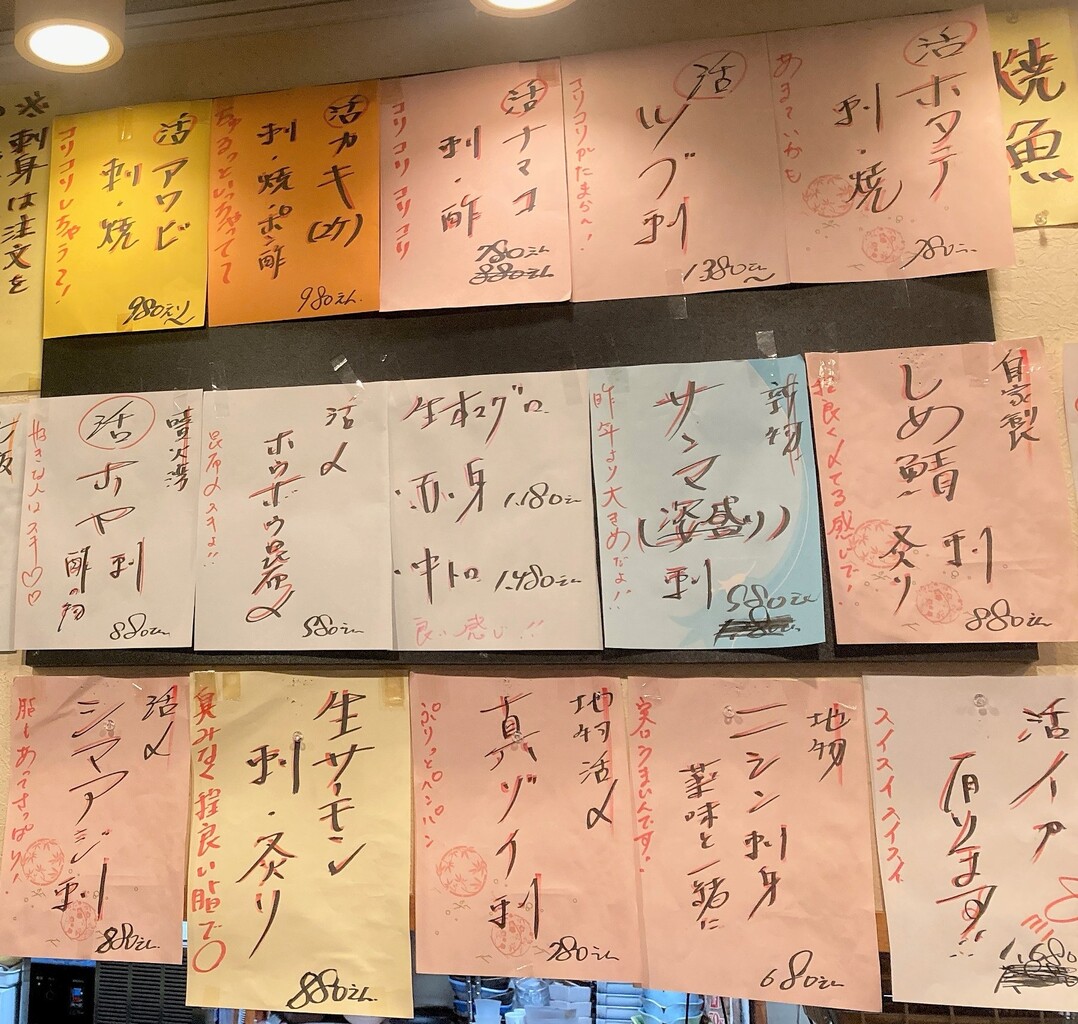 焼魚
活ホタテ
刺・焼
あまていかも
780えん
活
ツブ刺
コリコリがたまらん!
1,380えん
活ナマコ
刺・酢
コリコリコリコリ
780えん
880えん
活カキ(2ケ)
刺・焼・ポン酢
ちゅるっといっちゃってて
980えん
活アワビ
刺・焼
コリコリしちゃうて!
980えん
※刺身は注文を
自家製
しめ鯖
刺
炙り
程良く〆てる感じで!
880えん
新物
サンマ
(姿盛り)
刺
昨年より大きめだよ!!
580えん
生本マグロ
・赤身 1,180えん
・中トロ 1,480えん
良い感じ!!
活〆
ホウボウ昆布〆
昆布〆スキよ!!
580えん
噴火湾
活
ホヤ
刺
酢の物
好きな人はスキ♡♡
880えん
活イカ
有ります!!
スイスイスイスイ
地物
ニシン刺身
薬味と一緒に
実はうまいんです。
680えん
地物活〆
真ゾイ刺
ぷりっとペンペン
780えん
生サーモン
刺・炙り
臭みなく程良い脂で〇
880えん
活〆
シマアジ
刺
脂しめってさっぱり!
880えん